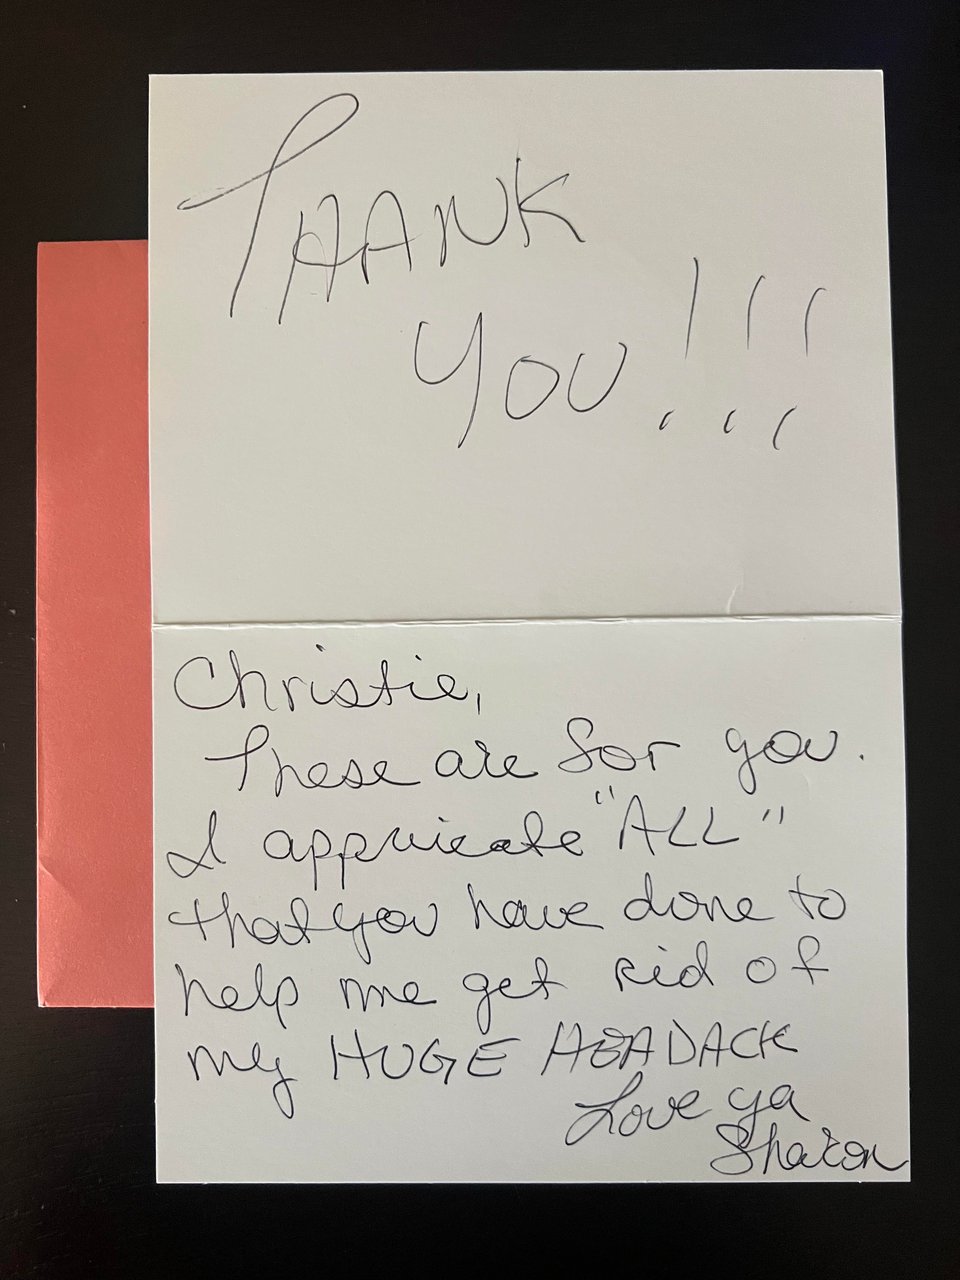 THANK
YOU!!!
Christie,
These are for you.
I appriciate "ALL"
that you have done to
help me get rid of
my HUGE HEADACK
Love ya
Sharon